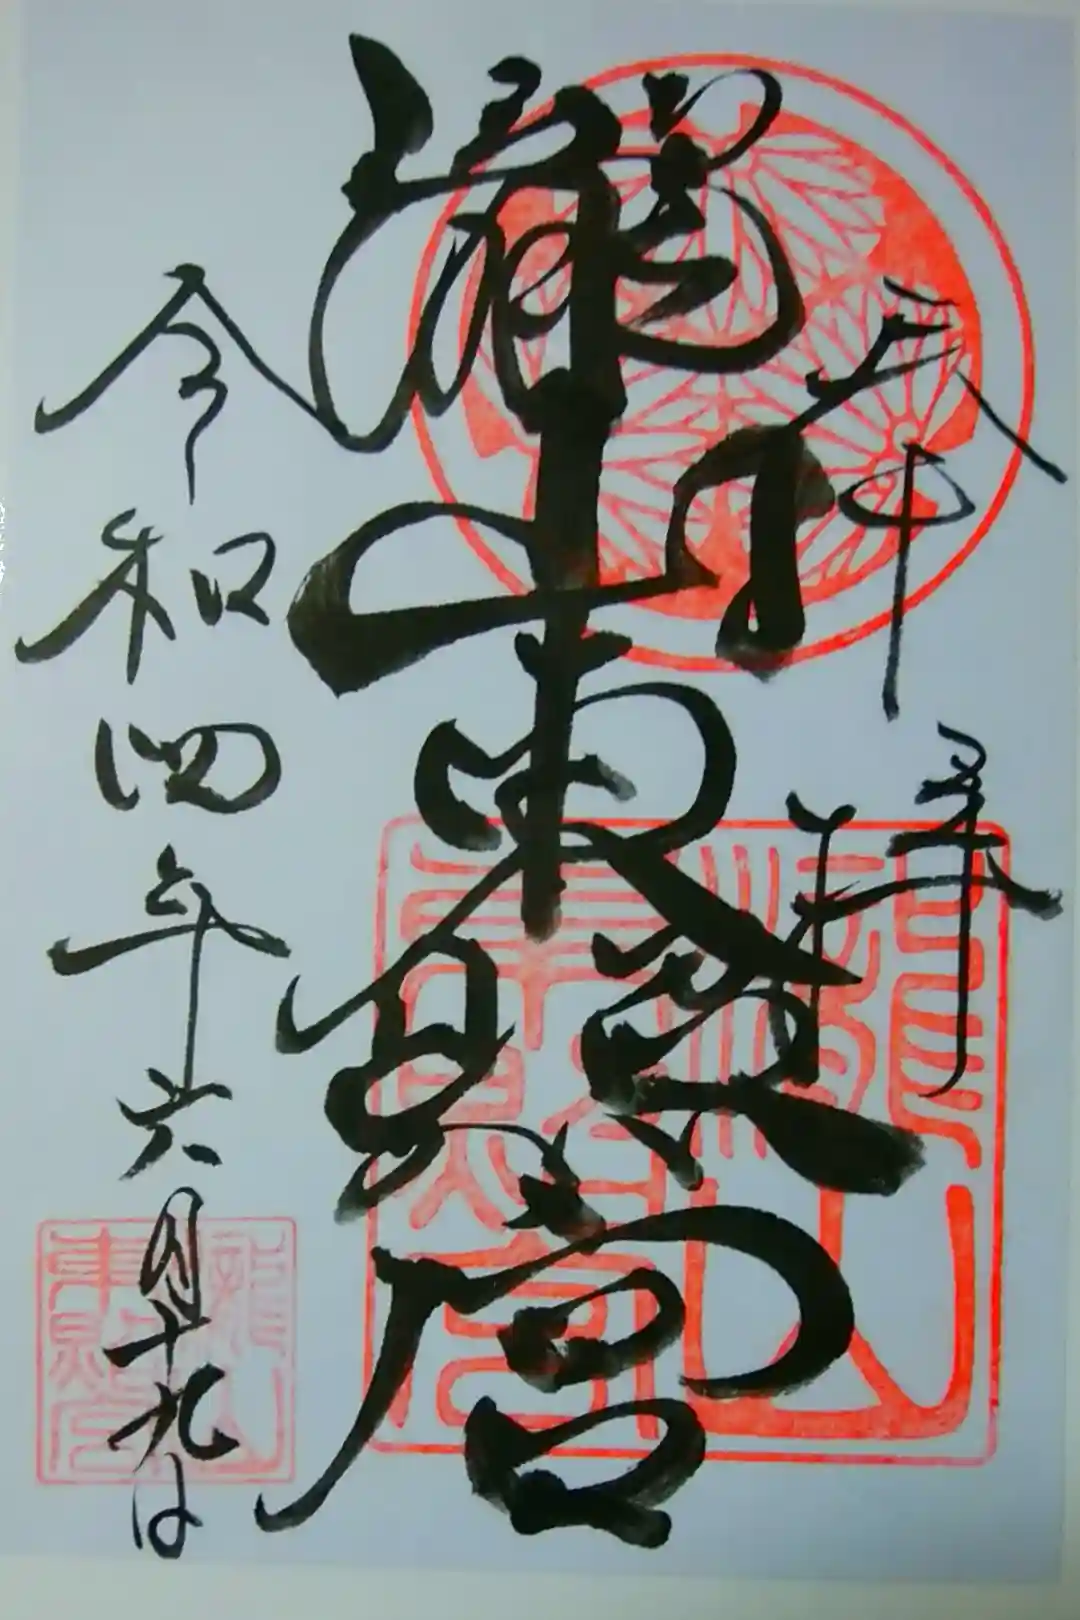 奉拝
瀧山東照宮
令和四年六月十九日
瀧山東照宮
瀧山東照宮